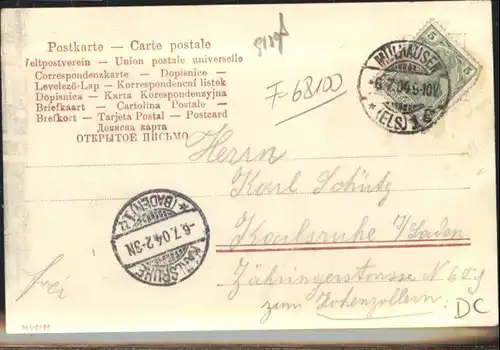 Postkarte — Carte postale
Weltpostverein — Union postale universelle
Correspondenzkarte — Dopisnice —
Levelező-Lap — Korrespondenční listek
Dopisnica — Karta Korespondenzyjna
Briefkaart — Cartolina Postale —
Brefkort — Tarjeta Postal — Postcard
Дописна карта
ОТКРЫТОЕ ПИСЬМО
F-68100
5
5
MÜLHAUSEN
(ELS)
Herrn
Karl Schütz
Karlsruhe i/Baden
Zähringerstrasse N 60
zum Hohenzollern
frei
KARLSRUHE
-6.7.04.2-3N
(BADEN)
DC